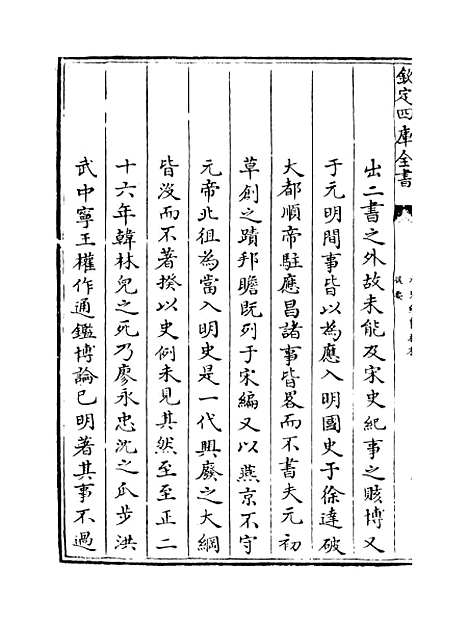 欽定四庫全書
出二書之外故未能及宋史紀事之賅博又
于元明間事皆以為應入明國史于徐達破
大都順帝駐應昌諸事皆畧而不書夫元初
草創之蹟邦瞻既列于宋編又以燕京不守
元帝北徂為當入明史是一代興廢之大綱
皆沒而不著揆以史例未見其然至至正二
十六年韓林兒之死乃廖永忠沈之瓜步洪
武中寧王權作通鑑博論已明著其事不過